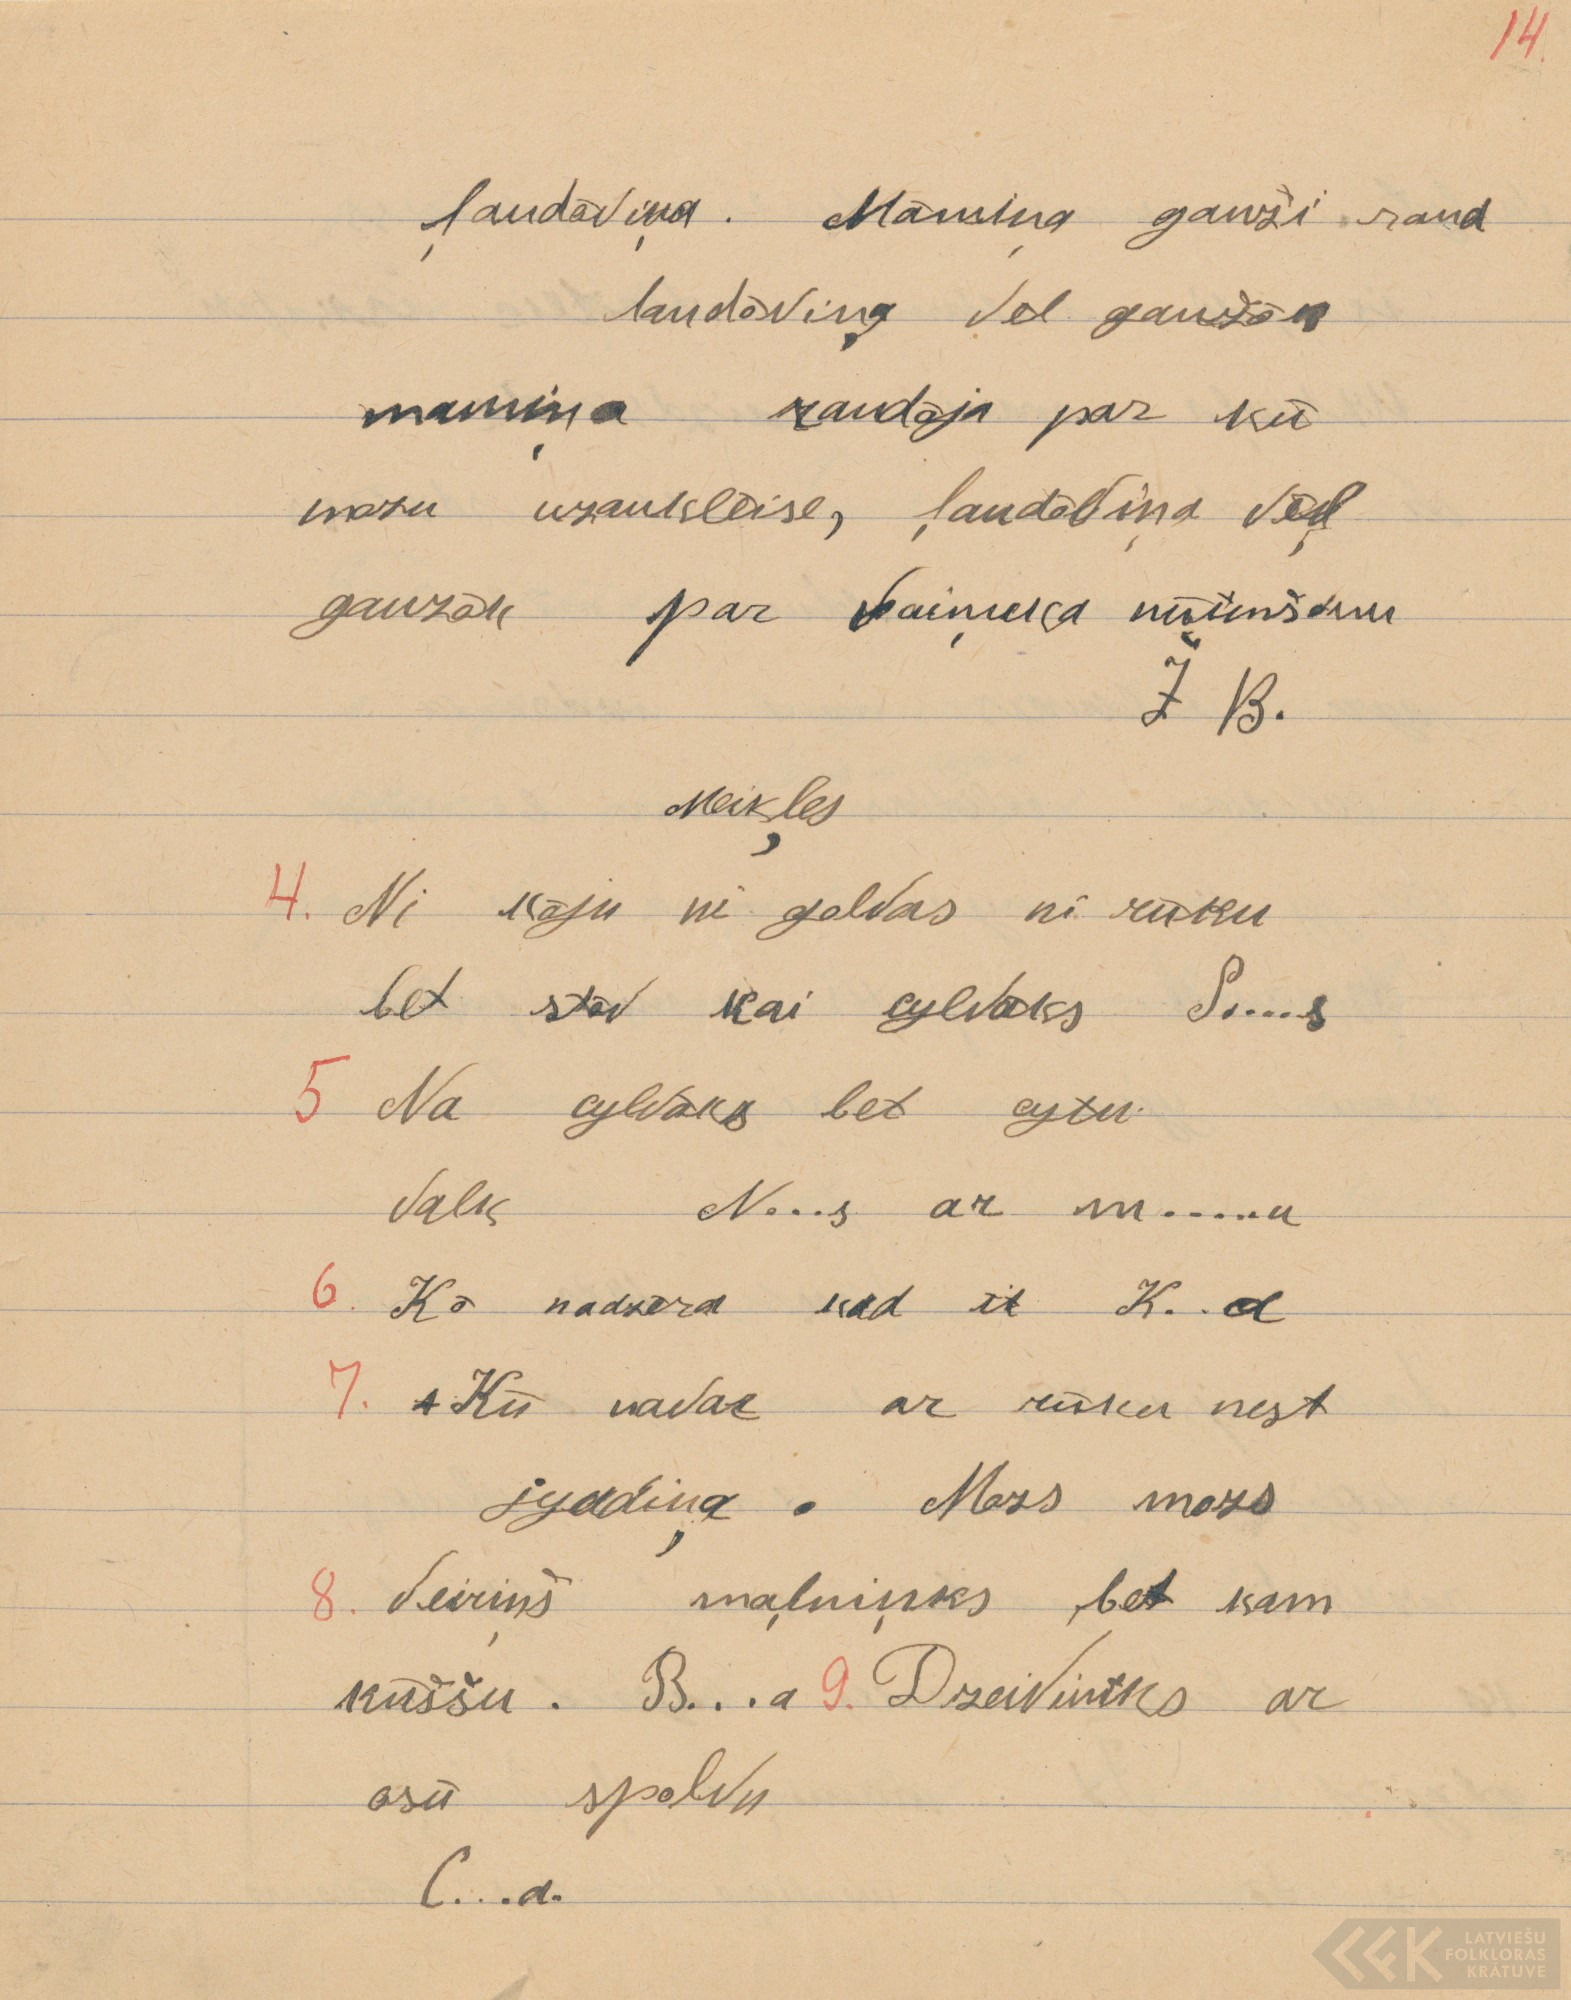 14.
ļaudaviņa. Māmiņa gauži raud
laudāviņa vēl gaužāk
mamiņa raudāja par kū
mozu uzaukleise, ļaudāviņa vēļ
gauzāk par vaiņuka nūjimšonu
Ž B.
Meikļes
4. Ni kāju ni golvas ni rūku
bet stāv kai cylvāks S....s
5 Na cylvāks bet cytu
valk N...s ar m.....u
6. Kā nadzērd kad it K...a
7. Kū navar ar rūku nest
jyudiņa. Mozs mozs
8. Veiriņš maļniņks bet kam
kūššu. B...a 9. Dzeivinīks ar
osū spolvu
C...a.
LATVIEŠU
FOLKLORAS
KRĀTUVE